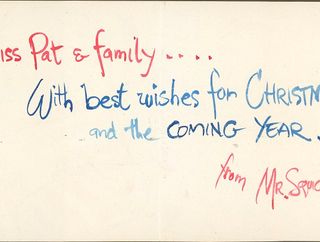 iss Pat & family . . . .
With best wishes for CHRISTM
and the COMING YEAR .
from MR. SQUI